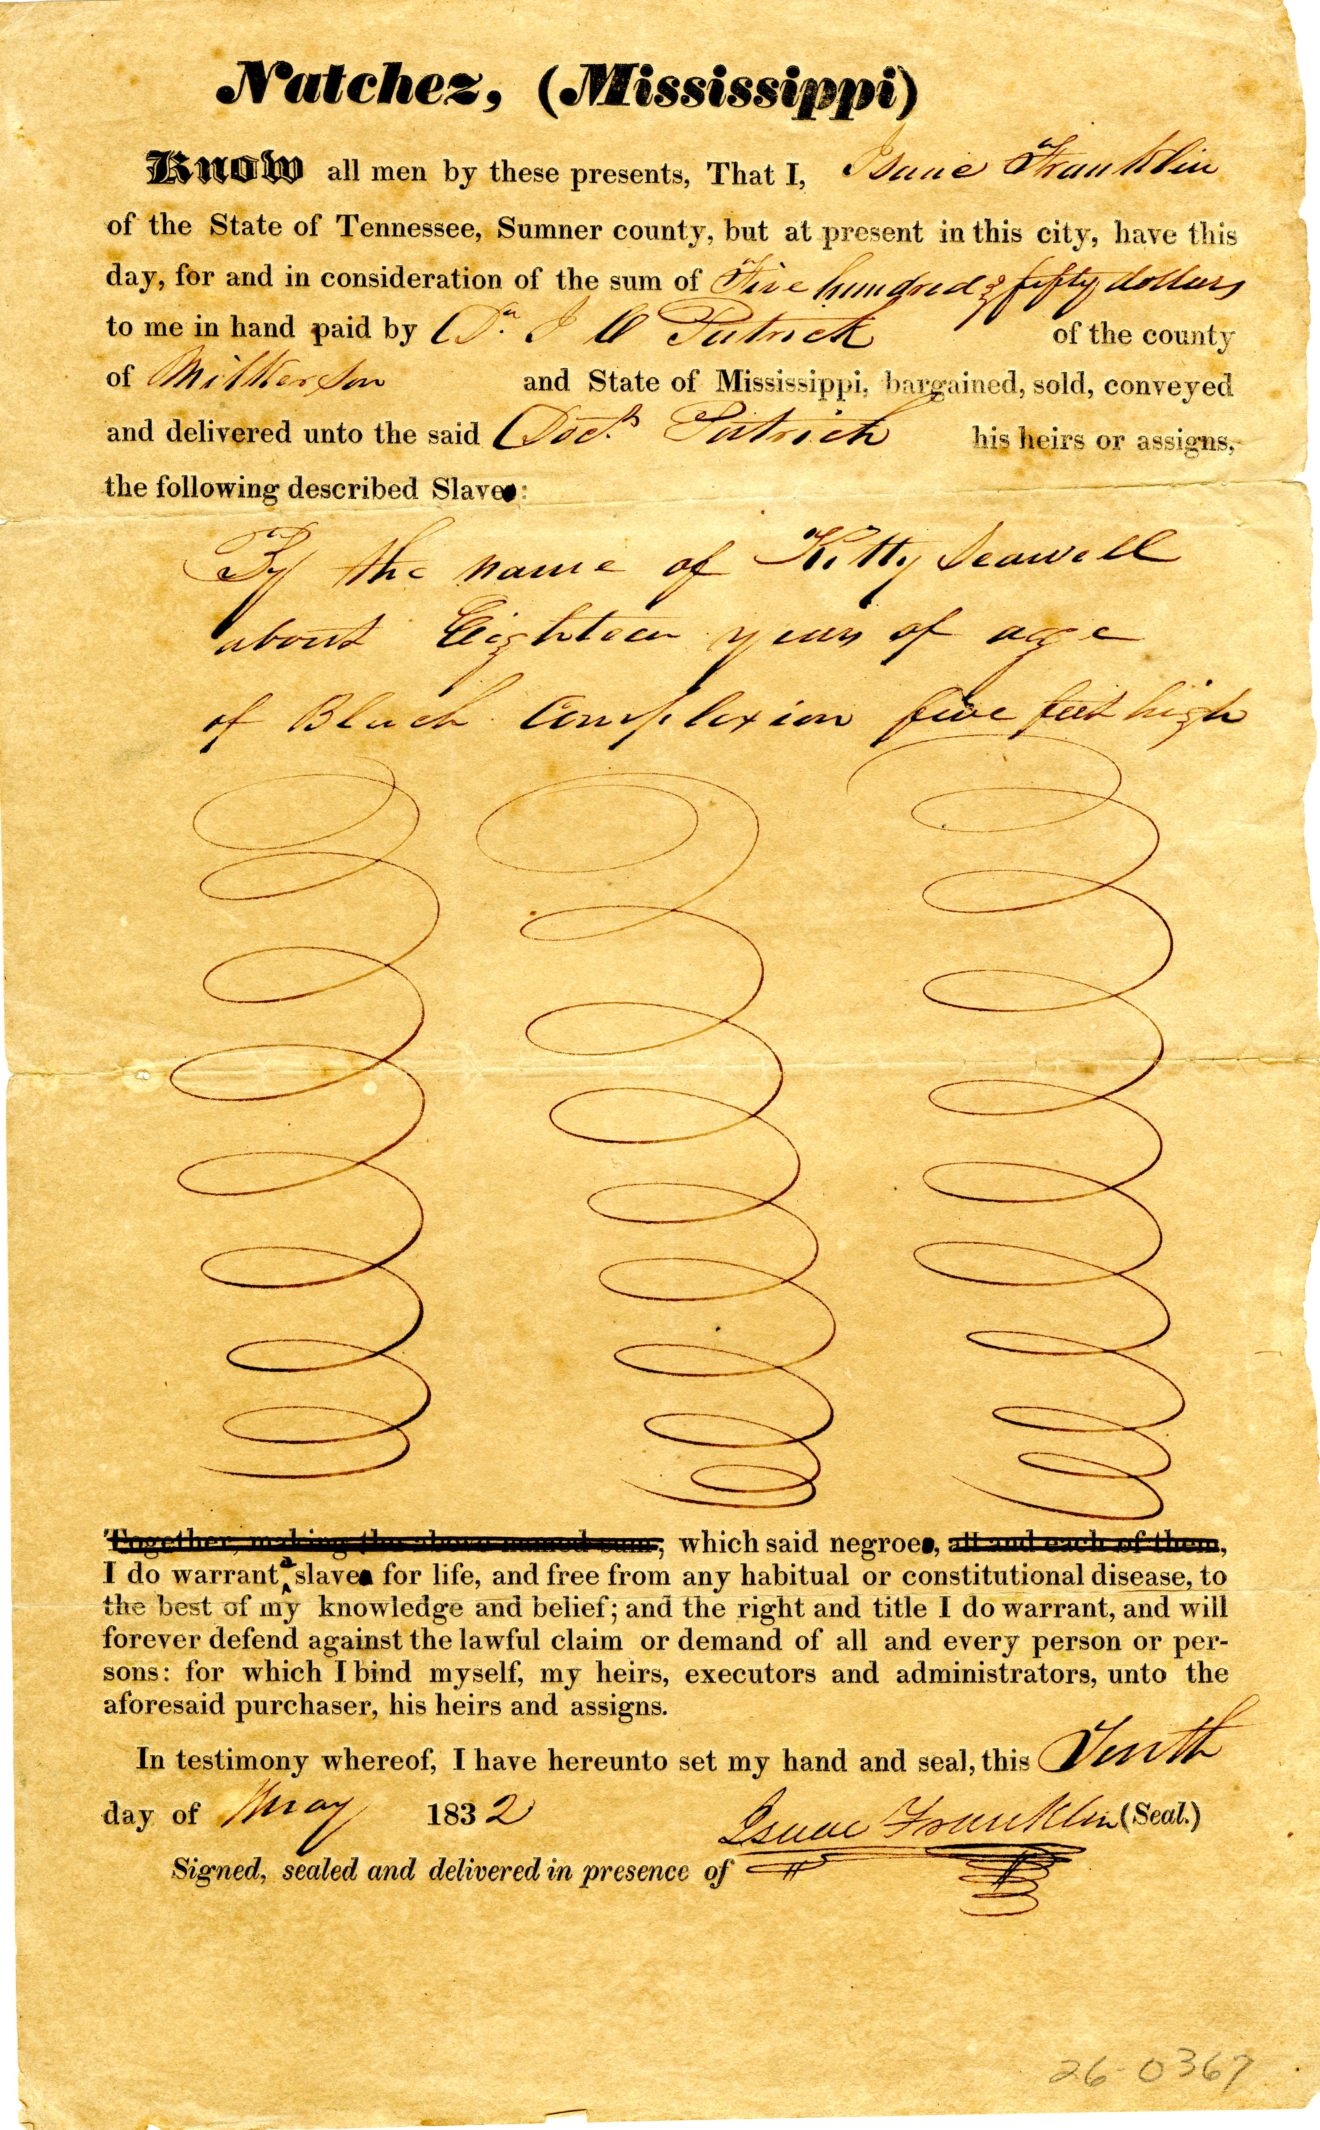 Natchez, (Mississippi)
Know all men by these presents, That I, Isaac Franklin
of the State of Tennessee, Sumner county, but at present in this city, have this
day, for and in consideration of the sum of Five hundred & fifty dollars
to me in hand paid by Dr. J O Patrick of the county
of Wilkerson and State of Mississippi, bargained, sold, conveyed
and delivered unto the said Doct. Patrick his heirs or assigns,
the following described Slave:
By the name of Kitty Seawell
about Eighteen years of age
of Black Complexion five feet high
Together, making the above named sum; which said negroe, all and each of them,
I do warrant a slave for life, and free from any habitual or constitutional disease, to
the best of my knowledge and belief; and the right and title I do warrant, and will
forever defend against the lawful claim or demand of all and every person or per-
sons: for which I bind myself, my heirs, executors and administrators, unto the
aforesaid purchaser, his heirs and assigns.
In testimony whereof, I have hereunto set my hand and seal, this Tenth
day of May 1832 Isaac Franklin (Seal.)
Signed, sealed and delivered in presence of
26-0367